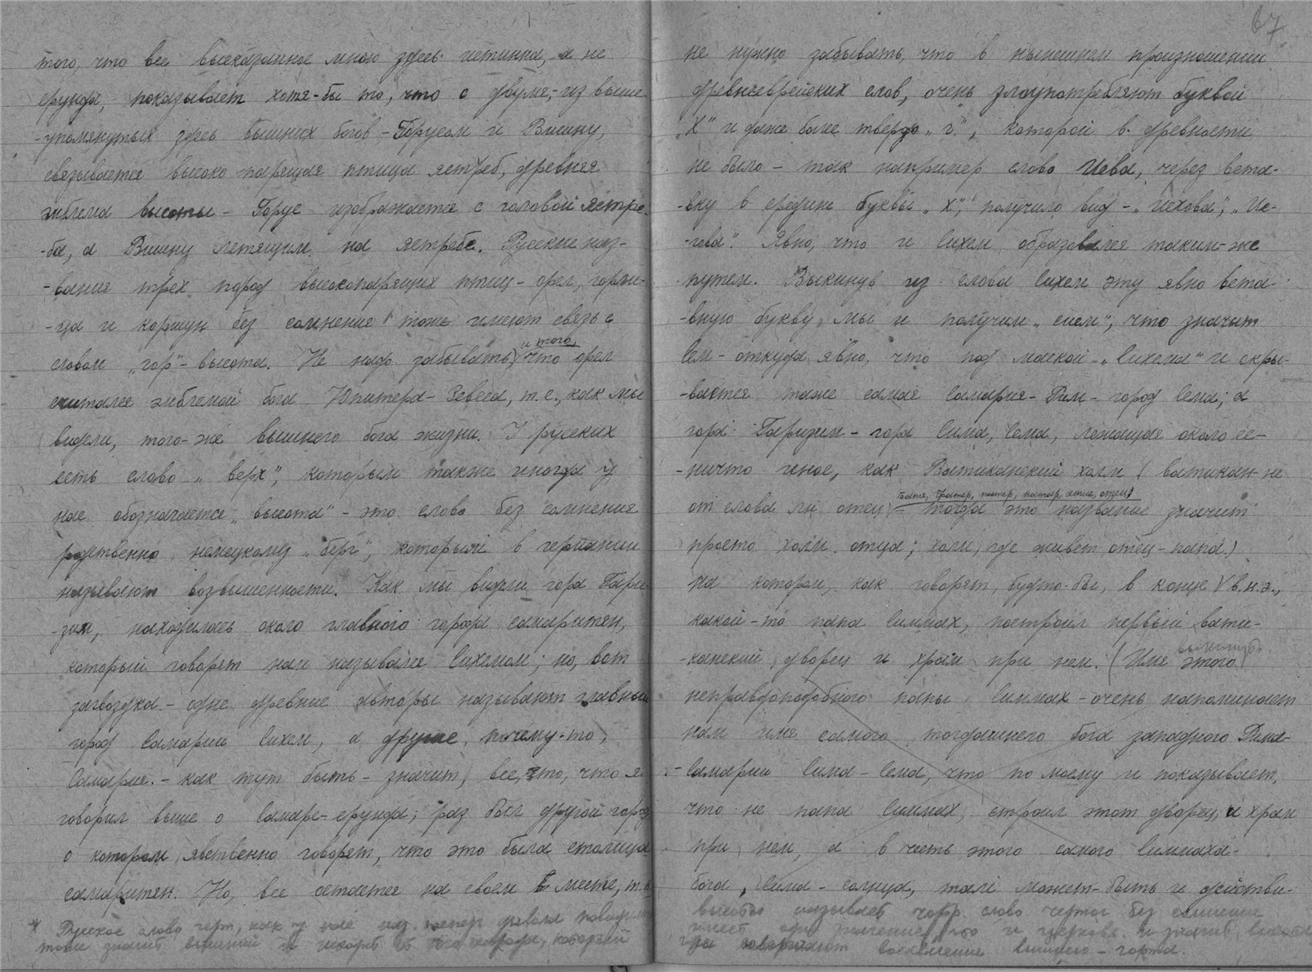 того, что все высказанное мною здесь истинна, а не
ерунда, показывает хотя-бы то, что с двумя,-из выше
-упомянутых здесь бышних богов-Горусом и Вишну,
связывается высоко парящая птица ястреб, древняя
эмблема высоты - Горус изображается с головой ястре-
-ба, а Вишну летящим на ястребе. Русские наз-
-вания трех пород высокопарящих птиц - орел, горли-
-ца и коршун без сомнения тоже имеют связь с
словом „гор"- высота. Не надо забывать и того, что орел
считался эмблемой бога Юпитера-Зевса, т.е., как мы
видели, того-же вышнего бога жизни. У русских
есть слово „верх", которым также иногда у
нас обозначается „высота" - это слово без сомнения
родственно немецкому „берг", которым в германии
называют возвышенности. Как мы видели гора Гари-
-зим, находилась около главного города самаритян,
который говорят нам назывался Сихемом; но, вот
загвоздка - одни древние авторы называют главный
город Самарии Сихем, а другие, почему-то,
Самария. - как тут быть - значит, все, то, что я
говорил выше о Самаре-ерунда; раз был другой город
о котором явственно говорят, что это была столица
самаритян. Но, все остается на своем месте, т.к.
* Русское слово черт, как у нас
тоже значит вышний и
67
не нужно забывать, что в нынешнем произношении
древнееврейских слов, очень злоупотребляют буквой
„Х" и даже более твердо „г.", которой в древности
не было - так например слово Иева, через встав-
-вку в средине буквы „х", получило вид - „Иехова", „Ие-
-гова". Явно, что и Сихем образовался таким-же
путем. Выкинув из слова Сихем эту явно встав-
-вную букву, мы и получим „Сием", что значит
Сем - откуда явно, что под маской „Сихема" и скры-
-вается таже самая Самария-Рим - город Сема; а
гора Гаризим - гора Сима, Сема, лежащая около ее-
-ничто иное, как Ватиканский холм (ватикан не
от слова ли отец, тогда это название значит
просто холм отца; холм, где живет отец-папа.)
на котором, как говорят, будто-бы, в конце V в.н.э.,
какой-то папа Симмах, построил первый вати-
-канский дворец и храм при нем. (Имя этого
неправдоподобного папы Симмах - очень напоминает
нам имя самого тогдашнего бога западного Рима-
-Самарии Сима-Сема, что по моему и показывает,
что не папа Симмах строил этот дворец и храм
при нем, а в честь этого самого Симмаха-
бога, Сима - солнца, там может-быть и действи-
высоты называет слово чертог без сомнения
имеет одно значение, что и церковь и значит
где вышнего - горта.